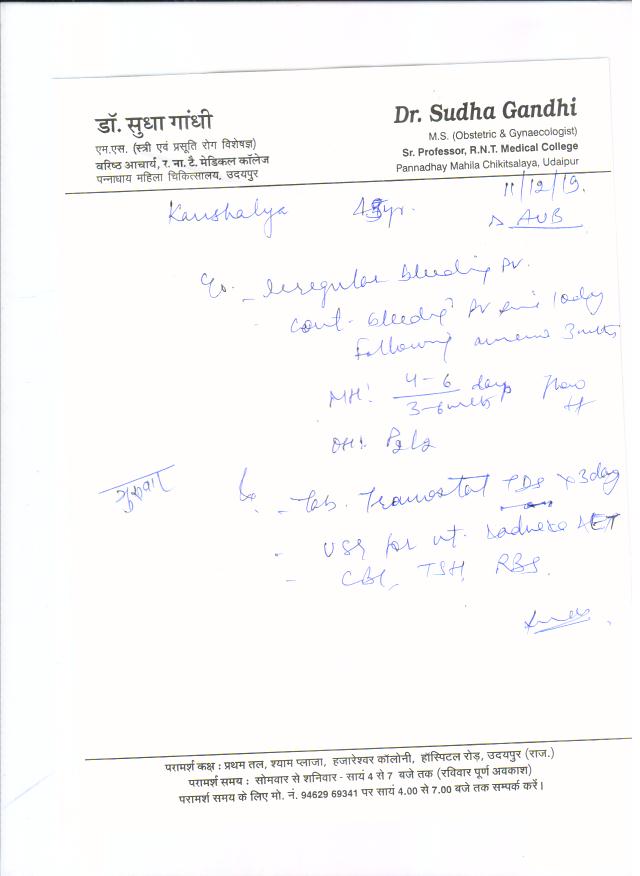 डॉ. सुधा गांधी
एम.एस. (स्त्री एवं प्रसूति रोग विशेषज्ञ)
वरिष्ठ आचार्य, र. ना. टै. मेडिकल कॉलेज
पन्नाधाय महिला चिकित्सालय, उदयपुर
Dr. Sudha Gandhi
M.S. (Obstetric & Gynaecologist)
Sr. Professor, R.N.T. Medical College
Pannadhay Mahila Chikitsalaya, Udaipur
11/12/19.
Kaushalya yr. AUB
Irregular bleeding PV.
Cont. bleeding PV since 10day
following 3mths
MH: 4-6 days flow
3-6mths
OH: P2L2
गुरुवार
- Tab. TDS x 3day
- USG for ut. adnexa ET
- CBC, TSH, RBS.
परामर्श कक्ष : प्रथम तल, श्याम प्लाजा, हजारेश्वर कॉलोनी, हॉस्पिटल रोड़, उदयपुर (राज.)
परामर्श समय : सोमवार से शनिवार - सायं 4 से 7 बजे तक (रविवार पूर्ण अवकाश)
परामर्श समय के लिए मो. नं. 94629 69341 पर सायं 4.00 से 7.00 बजे तक सम्पर्क करें।